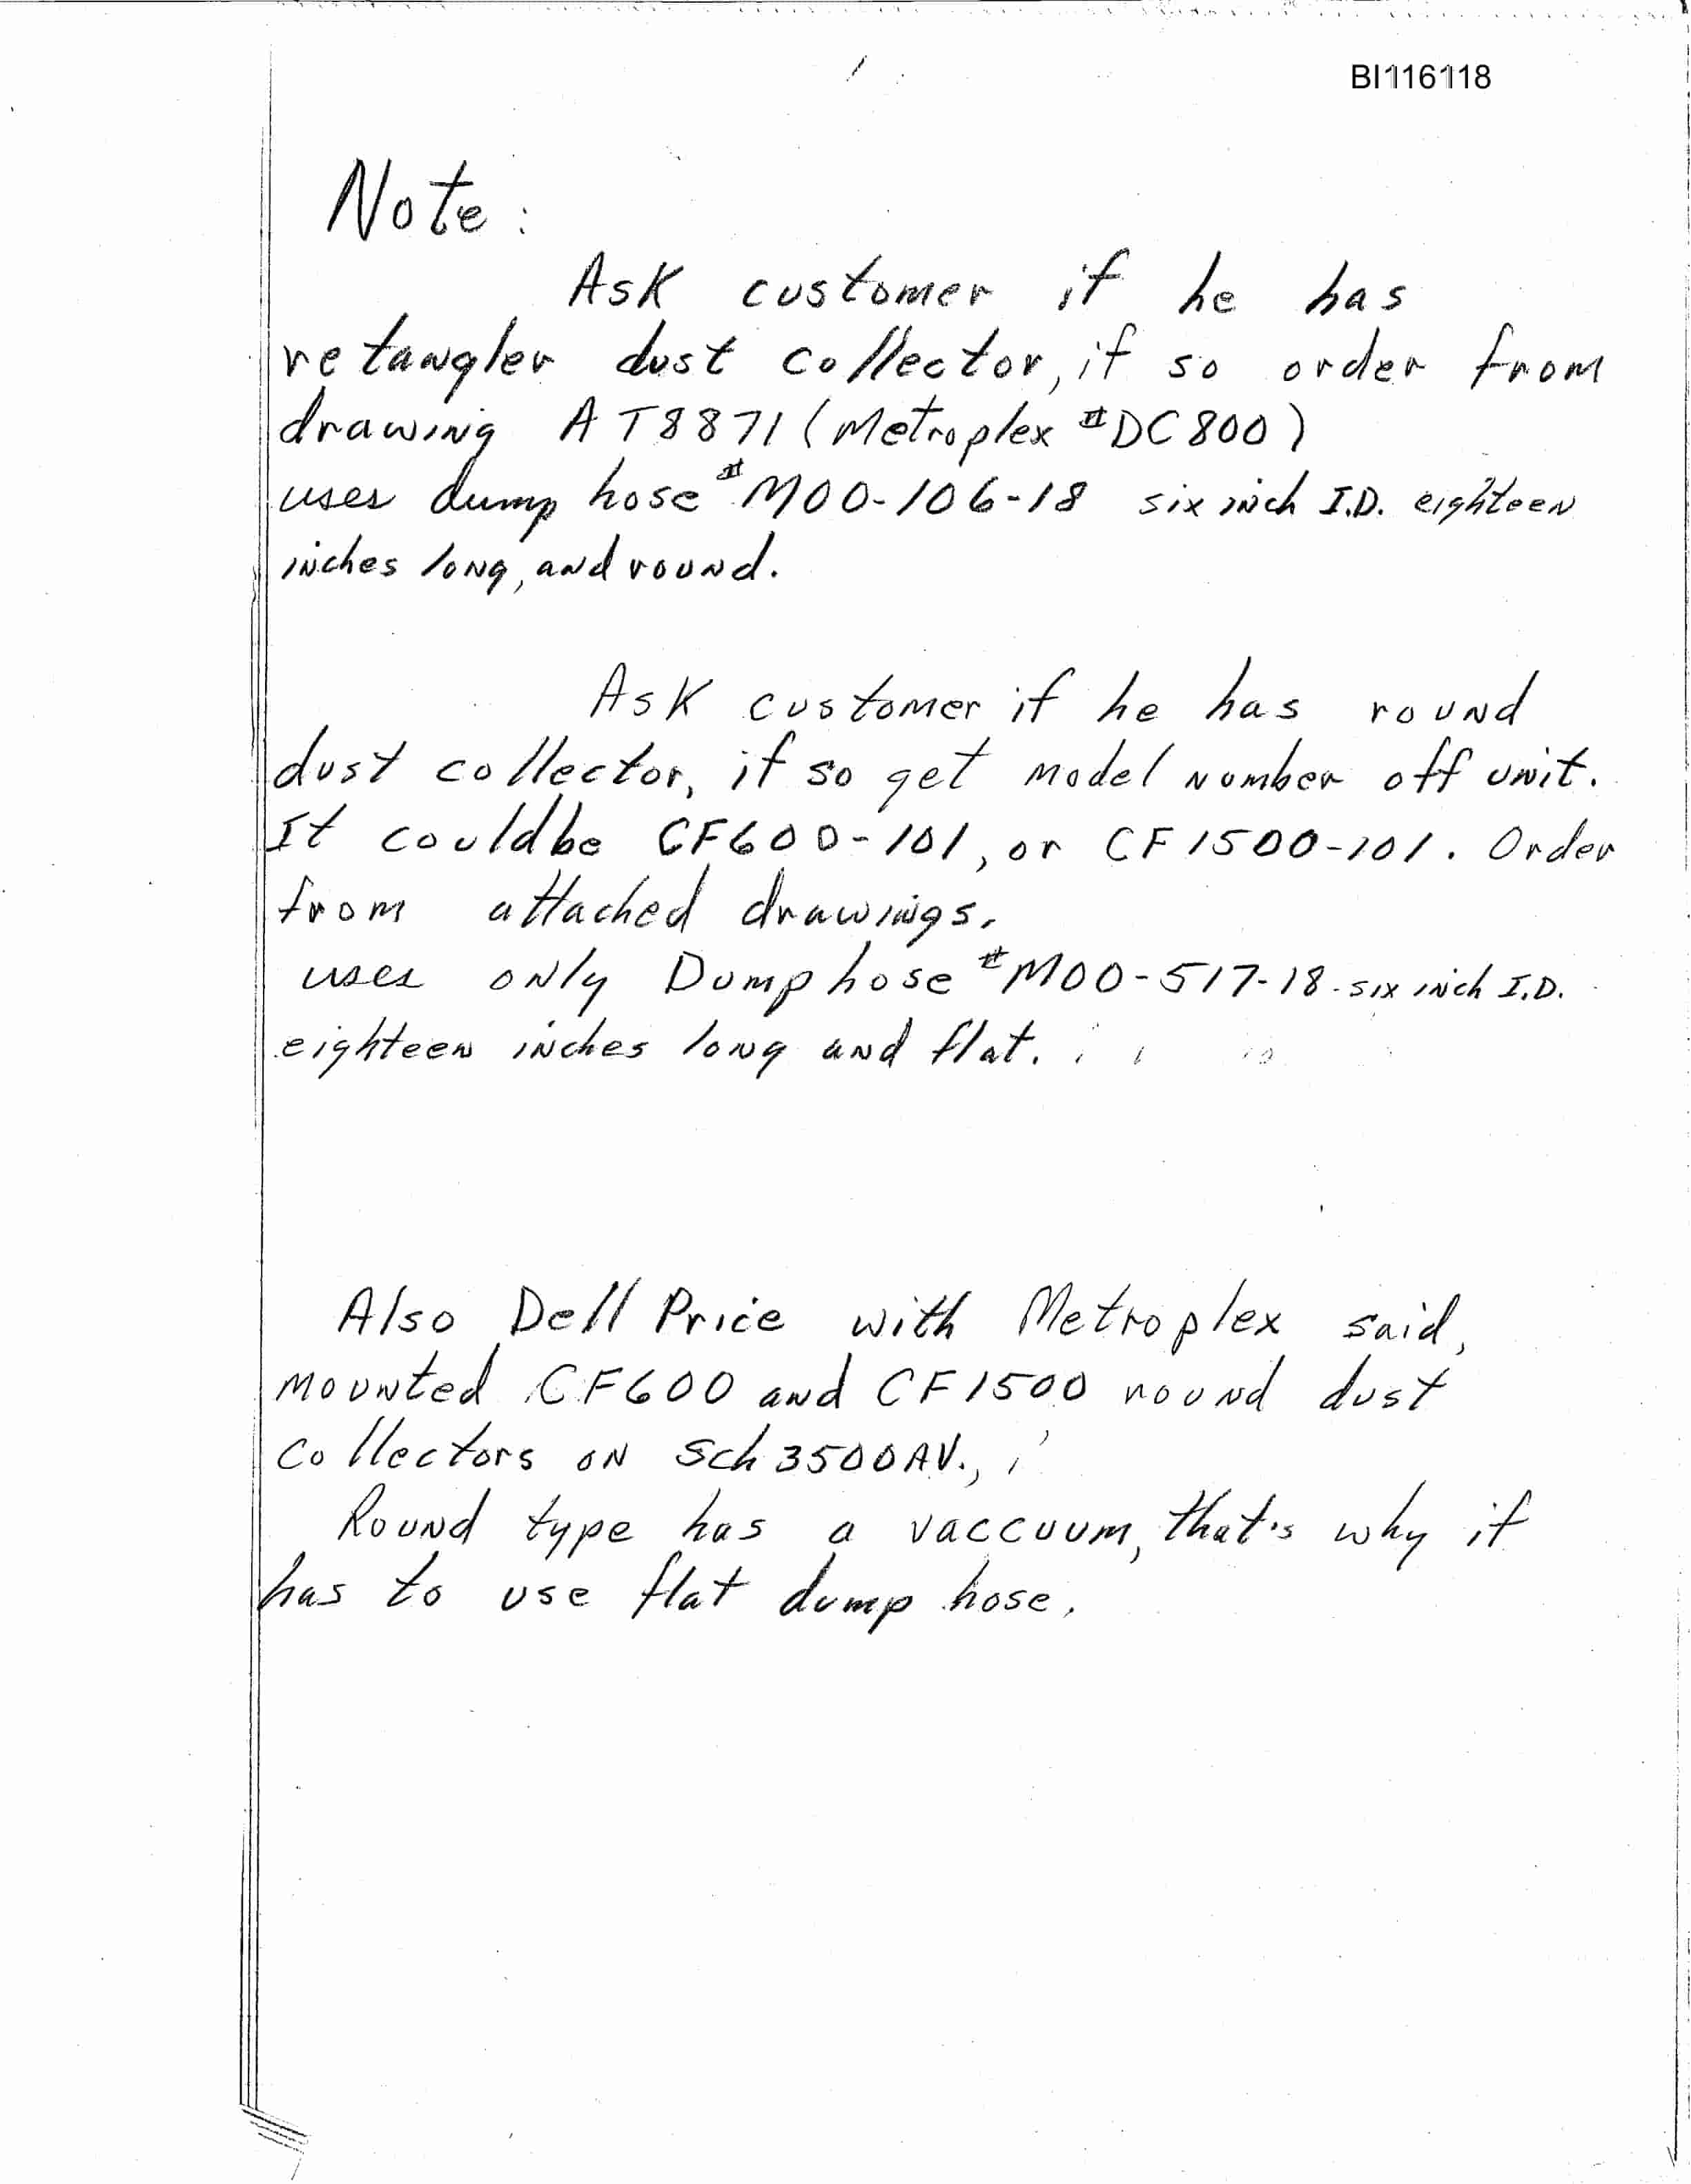 BI116118
Note:
Ask customer if he has
retangler dust collector, if so order from
drawing AT8871 (Metroplex #DC800)
uses dump hose #M00-106-18 six inch I.D. eighteen
inches long, and round.
Ask customer if he has round
dust collector, if so get model number off unit.
It could be CF600-101, or CF1500-101. Order
from attached drawings.
uses only Dump hose #M00-517-18. six inch I.D.
eighteen inches long and flat.
Also Dell Price with Metroplex said,
mounted CF600 and CF1500 round dust
collectors on Sch 3500AV.,
Round type has a vaccuum, that's why it
has to use flat dump hose.